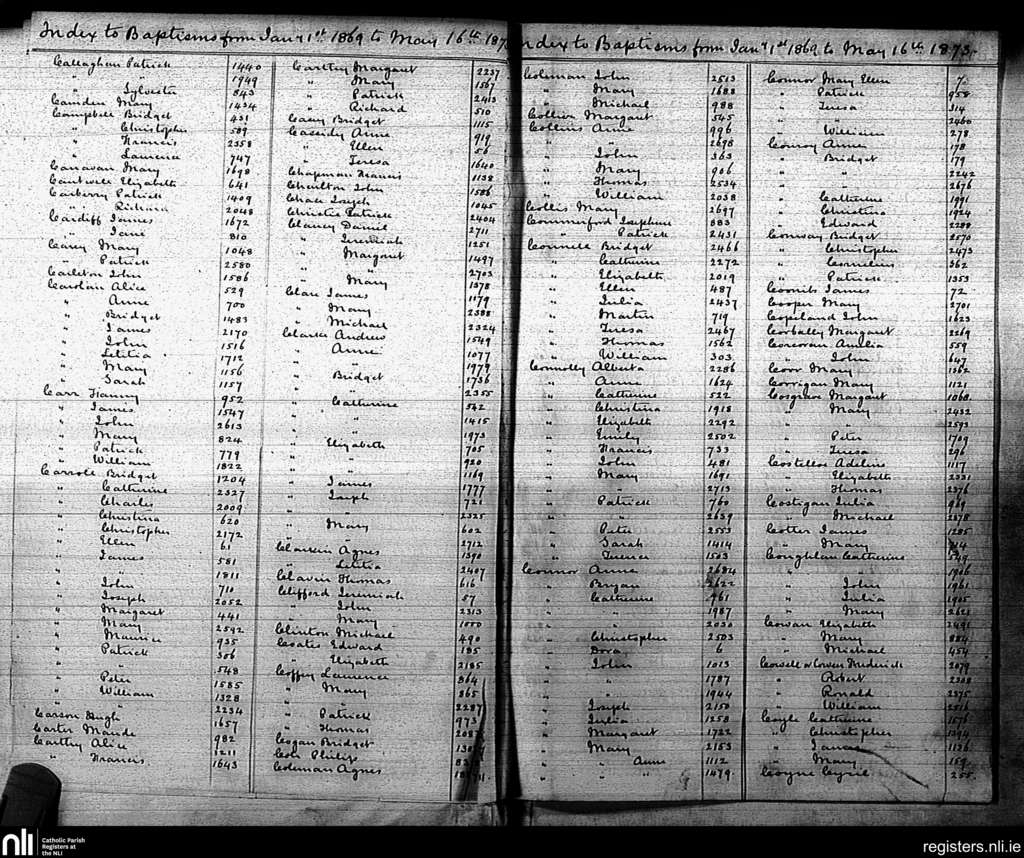 Index to Baptisms from Jany 1st 1869 to May 16th 187
Callaghan Patrick 1440
" " 1949
" Sylvester 843
Camden Mary 1434
Campbell Bridget 431
" Christopher 589
" Francis 2358
" Laurence 747
Canavan Mary 1698
Cantwell Elizabeth 641
Carberry Patrick 1409
" Richard 2048
Cardiff James 1672
" Jane 810
Carey Mary 1048
" Patrick 2580
Carleton John 1586
Carolan Alice 529
" Anne 700
" Bridget 1483
" James 2170
" John 1516
" Letitia 1712
" Mary 1156
" Sarah 1157
Carr Fanny 952
" James 1547
" John 2613
" Mary 824
" Patrick 779
" William 1822
Carroll Bridget 1204
" Catherine 2327
" Charles 2009
" Christina 620
" Christopher 2172
" Ellen 61
" James 581
" " 1811
" John 710
" Joseph 2052
" Margaret 441
" Mary 2592
" Maurice 935
" Patrick 306
" " 548
" Peter 1585
" William 1328
" " 2234
Carson Hugh 1657
Carter Maude 982
Carthy Alice 1211
" Francis 1643
Carthy Margaret 2237
" Mary 1567
" Patrick 2413
" Richard 510
Casey Bridget 1115
Cassidy Anne 919
" Ellen 56
" Teresa 1640
Chapman Francis 1138
Charlton John 1586
Chase Joseph 1045
Christie Patrick 2404
Clancy Daniel 2711
" Jeremiah 1251
" Margaret 1497
" " 2703
" Mary 1378
Clare James 1179
" Mary 2388
" Michael 2324
Clarke Andrew 1549
" Anne 1077
" " 1979
" Bridget 1736
" " 2355
" Catherine 542
" " 1415
" " 1973
" Elizabeth 705
" " 920
" James 1169
" Joseph 1777
" " 721
" " 2325
" Mary 602
" " 2712
Clarkin Agnes 1390
" Letitia 2407
Clavin Thomas 616
Clifford Jeremiah 57
" John 2313
" Mary
Clinton Michael 490
Coates Edward 185
" Elizabeth 2185
Coffey Laurence 864
" Mary 865
" " 2287
" Patrick 973
" Thomas
Cogan Bridget
Philip
Coleman Agnes
ndex to Baptisms from Jany 1st 1869 to May 16th 1873.
Coleman John 2513
" Mary 1688
" Michael 988
Collier Margaret 545
Collins Anne 996
" " 2698
" John 363
" Mary 906
" Thomas 2534
" William 2038
Collis Mary 2697
Commerford Josephine 883
" Patrick 2431
Connell Bridget 2466
" Catherine 2272
" Elizabeth 2019
" Ellen 487
" Julia 2437
" Martin 719
" Teresa 2467
" Thomas 1562
" William 303
Connolly Alberta 2286
" Anne 1624
" Catherine 522
" Christina 1918
" Elizabeth 2292
" Emily 2502
" Francis 733
" John 481
" Mary 1691
" " 2713
" Patrick 760
" " 2639
" Peter 2553
" Sarah 1414
" 1503
Connor Anne 2684
" Bryan 2622
" Catherine 961
" " 1987
" " 2030
" Christopher 2503
" Dora 6
" John 1013
" " 1787
" " 1944
" Joseph 2150
" Julia 1258
" Margaret 1722
" Mary 2153
" " Anne 1112
" " " 1479
Connor Mary Ellen 7
" Patrick 958
" Teresa 314
" " 2460
" William 278
Conroy Anne 178
" Bridget 179
" " 2242
" " 2676
" Catherine 1991
" Christina 1924
" Edward 2288
Conway Bridget 2570
" Christopher 2473
" Cornelius 362
" Patrick 1353
James 72
Cooper Mary 2701
Copeland John 1623
Corbally Margaret 2269
Corcoran Amelia 559
" John 647
Corr Mary 1362
Corrigan Mary 1121
Cosgrave Margaret 1060
" Mary 2432
" " 2593
" Peter 1709
" Teresa 296
Costelloe Adeline 1117
" Elizabeth 2331
" Thomas 2376
Costigan Julia 969
" Michael 2378
Cotter James 1285
" Mary
Coughlan Catherine 549
" " 1906
" John 1961
" Julia 1905
" Mary 2621
Cowan Elizabeth 2491
" Mary 884
" Michael 454
Cowell or Cowen Frederick 2079
" Robert 2308
" Ronald 2375
" William 2516
Coyle Catherine 1576
" Christopher 1394
" James 1136
" Mary 159
Coyne Cyril 255
nli
Catholic Parish
Registers at
the NLI
registers.nli.ie